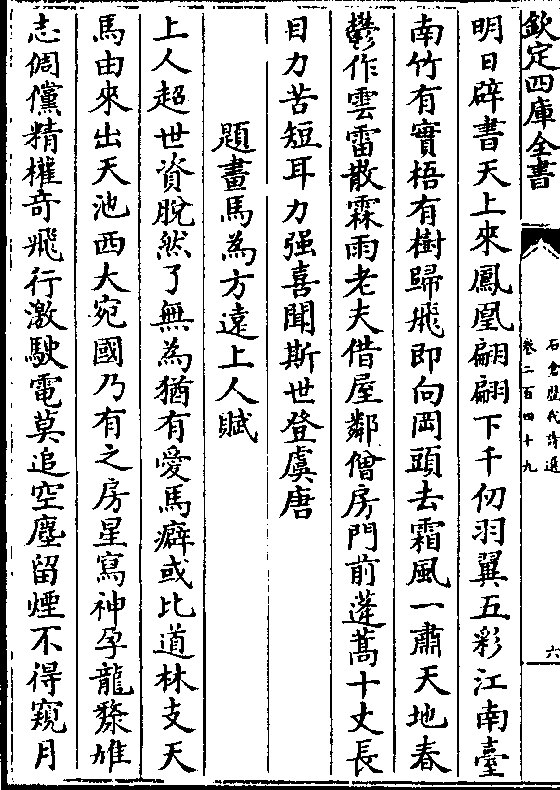 欽定四庫全書
石倉歷代詩選
卷二百四十九
六
明日辟書天上來鳳凰翩翩下千仞羽翼五彩江南臺
南竹有實梧有樹歸飛即向岡頭去霜風一肅天地春
鬱作雲雷散霖雨老夫借屋鄰僧房門前蓬蒿十丈長
目力苦短耳力强喜聞斯世登虞唐
題畫馬為方遠上人賦
上人超世資脫然了無為猶有愛馬癖或比道林支天
馬由來出天池西大宛國乃有之房星寫神孕龍漦雄
志倜儻精權奇飛行激駛電莫追空塵留煙不得窺月